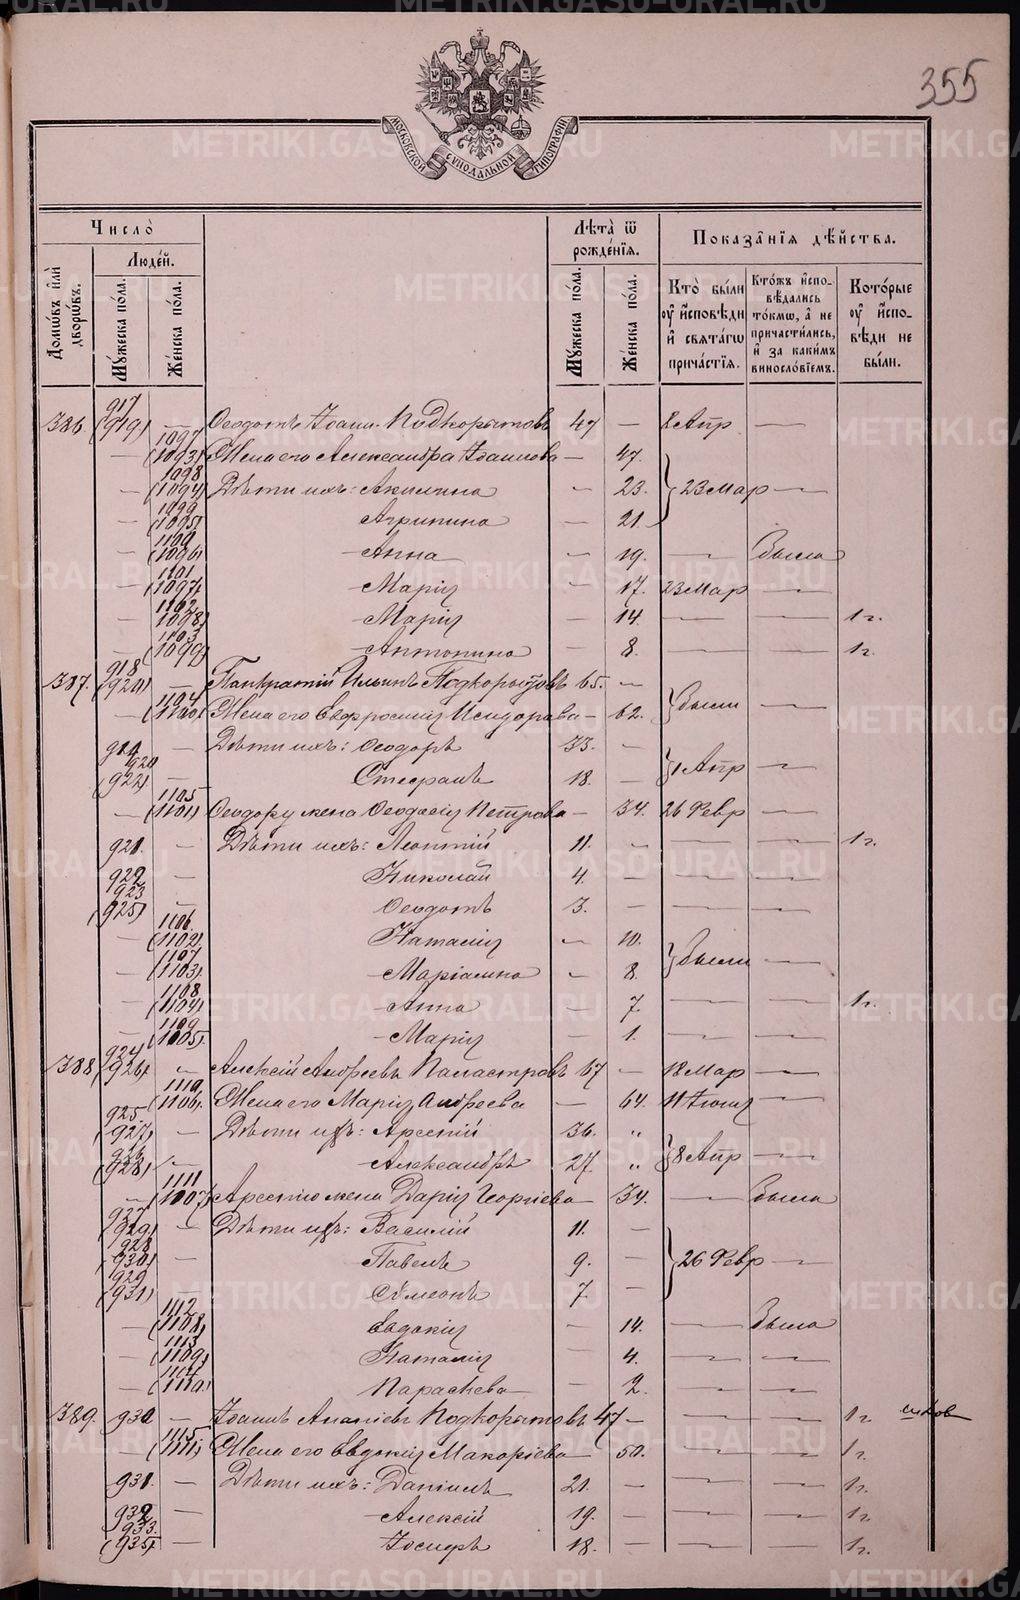 355
МОСКОВСКОЙ СѴНОДАЛЬНОЙ ТИПОГРАФІИ
Число̀
Людей.
Домѡвъ и҆лѝ дворѡвъ.
Мꙋжеска пола.
Женска пола.
Лѣта̀ ѿ рожденїѧ.
Мꙋжеска пола.
Женска пола.
Показанїѧ дѣйства.
Кто̀ были оу҆ и҆сповѣди и҆ свѧтагѡ причастїѧ.
Ктожъ и҆сповѣдались токмѡ, а҆ не причастились, и҆ за какимъ винословїемъ.
Которые оу҆ и҆сповѣди не были.
386. 917 (919) — Ѳеодотъ Іоан. Подкорытовъ 47 — 8 Апр —
— 1097 (1093) Жена его Александра Іоаннова — 47.
— 1098 (1094) Дѣти ихъ: Акилина — 23. } 23 Мар —
— 1099 (1095) Агрипина — 21
— 1100 (1096) Анна — 19. — Была
— 1101 (1097) Марія — 17. 23 Мар —
— 1102 (1098) Марія — 14 — — 1 г.
— 1103 (1099) Антонина — 8. — — 1 г.
387. 918 (920) — Панкратій Ильинъ Подкорытовъ 65. —
— 1104 (1100) Жена его Евфросинія Исидорова — 62. } были —
919 — Дѣти ихъ: Ѳеодоръ 33. —
920 (922) — Стефанъ 18. — } 1 Апр —
— 1105 (1101) Ѳеодору жена Ѳеодосія Петрова — 34. 26 Февр —
921. — Дѣти ихъ: Леонтій 11. — — — 1 г.
922 — Николай 4. — — —
923 (925) — Ѳеодотъ 3. — — —
— 1106. (1102) Наталія — 10.
— 1107 (1103) Маріамна — 8. } были —
— 1108 (1104) Анна — 7 — — 1 г.
— 1109 (1105) Марія — 1. — —
388. 924 (926) — Алексій Андреевъ Паластровъ 67 — 18 Мар —
— 1110 (1106) Жена его Марія Андреева — 64. —
925. (927) — Дѣти ихъ: Арсеній 36. "
926 (928) — Александръ 27. " } 8 Апр —
— 1111 (1107) Арсенію жена Дарія Георгіева — 34. — Была
927 (929) — Дѣти ихъ: Василій 11. —
928 (930) — Павелъ 9. — } 26 Февр —
929 (931) — Сѵмеонъ 7 —
— 1112 (1108) Евдокія — 14. — Была
— 1113 (1109) Наталія — 4. — —
— 1114 (1110) Параскева — 2. — —
389. 930 — Іоаннъ Ананіевъ Подкорытовъ 47 — — — 1 г
— 1115 (1111) Жена его Евдокія Макаріева — 50. — — 1 г.
931. — Дѣти ихъ: Даніилъ 21. — — — 1 г.
932 — Алексій 19. — — — 1 г
933. (935) — Іосифъ 18. — — — 1 г.
METRIKI.GASO-URAL.RU